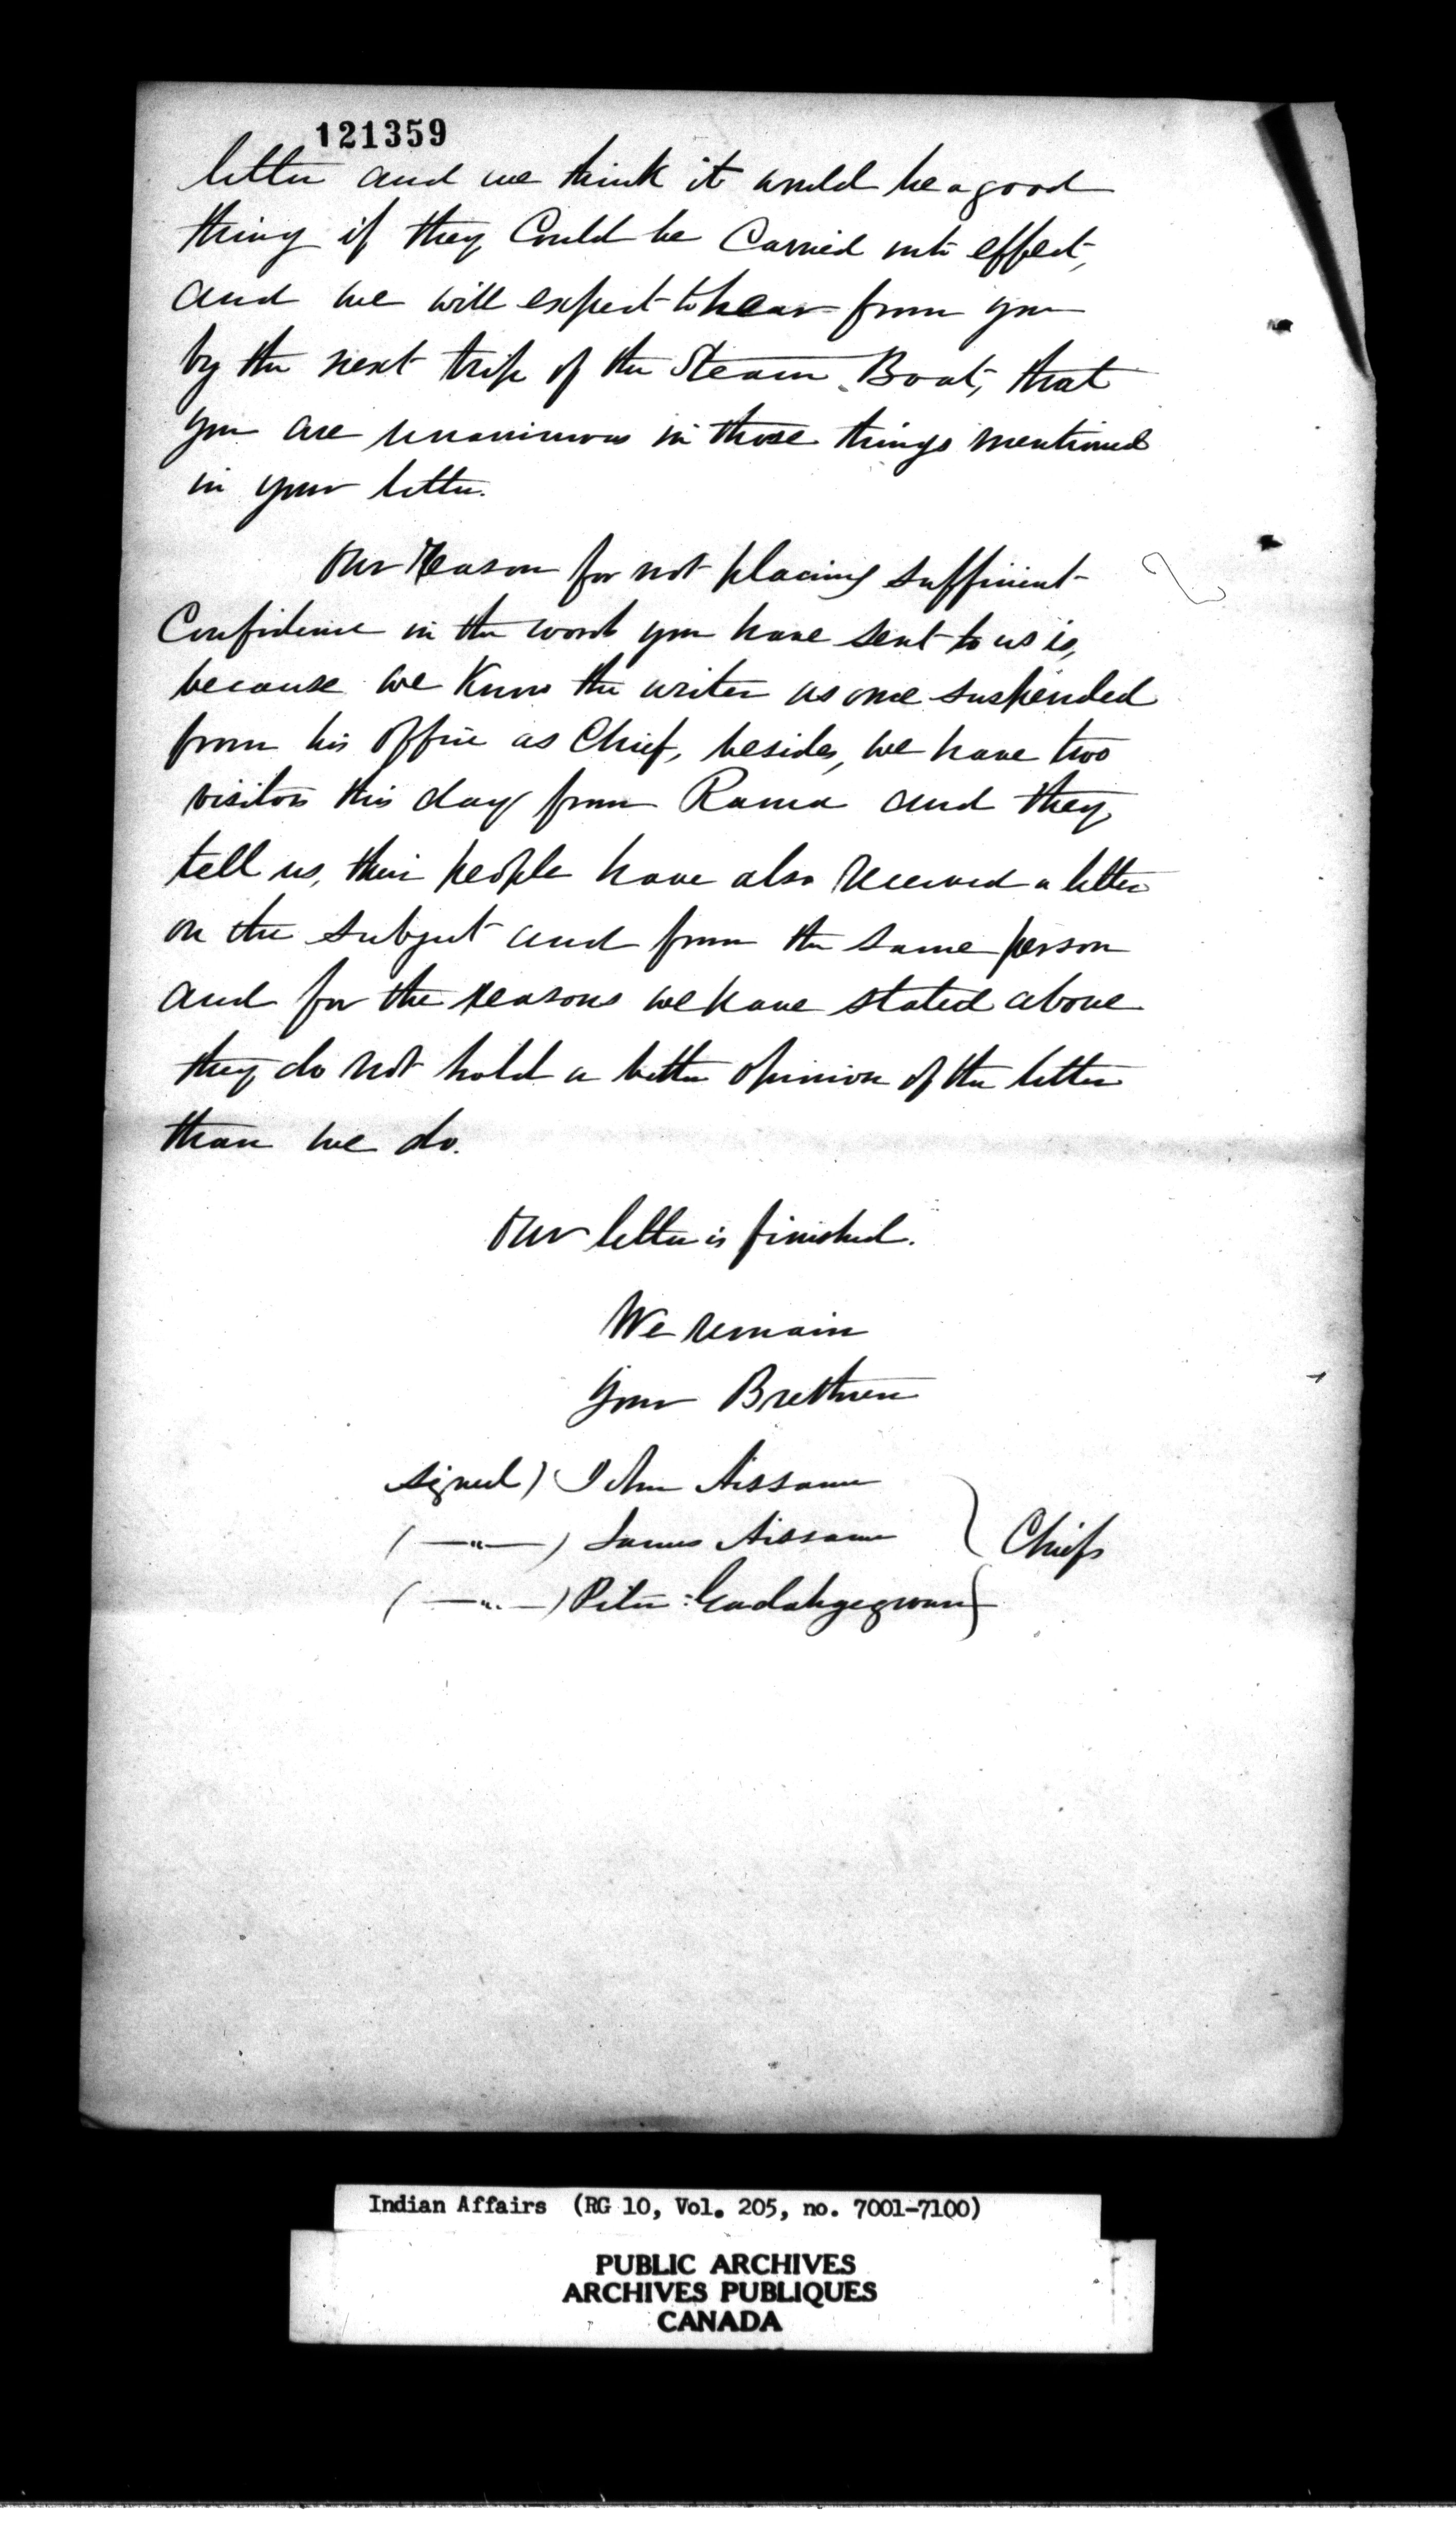 121359
letter and we think it would be a good
thing if they Could be Carried into effect,
and we will expect to hear from you
by the next trip of the Steam Boat, that
you are unanimous in those things mentioned
in your letter.
Our Reason for not placing sufficient
Confidence in the word you have sent to us is,
because we Know the writer as one suspended
from his Office as Chief, besides, we have two
visitors this day from Rama and they
tell us, their people have also received a letter
on the subject and from the same person
and for the reasons we have stated above
they do not hold a better opinion of the letter
than we do.
Our letter is finished.
We remain
Your Brethren
signed) John Aissance
( —"— ) James Aissance } Chiefs
( —"— ) Peter
Indian Affairs (RG 10, Vol. 205, no. 7001-7100)
PUBLIC ARCHIVES
ARCHIVES PUBLIQUES
CANADA